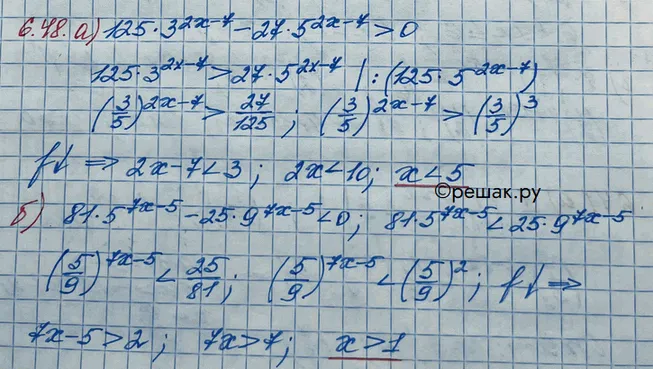 6.48. а) 125·3^(2x-7) - 27·5^(2x-7) > 0
125·3^(2x-7) > 27·5^(2x-7) | : (125·5^(2x-7))
(3/5)^(2x-7) > 27/125; (3/5)^(2x-7) > (3/5)^3
f↓ ⇒ 2x-7<3; 2x<10; x<5
©решак.ру
б) 81·5^(7x-5) - 25·9^(7x-5) < 0; 81·5^(7x-5) < 25·9^(7x-5)
(5/9)^(7x-5) < 25/81; (5/9)^(7x-5) < (5/9)^2; f↓ ⇒
7x-5>2; 7x>7; x>1